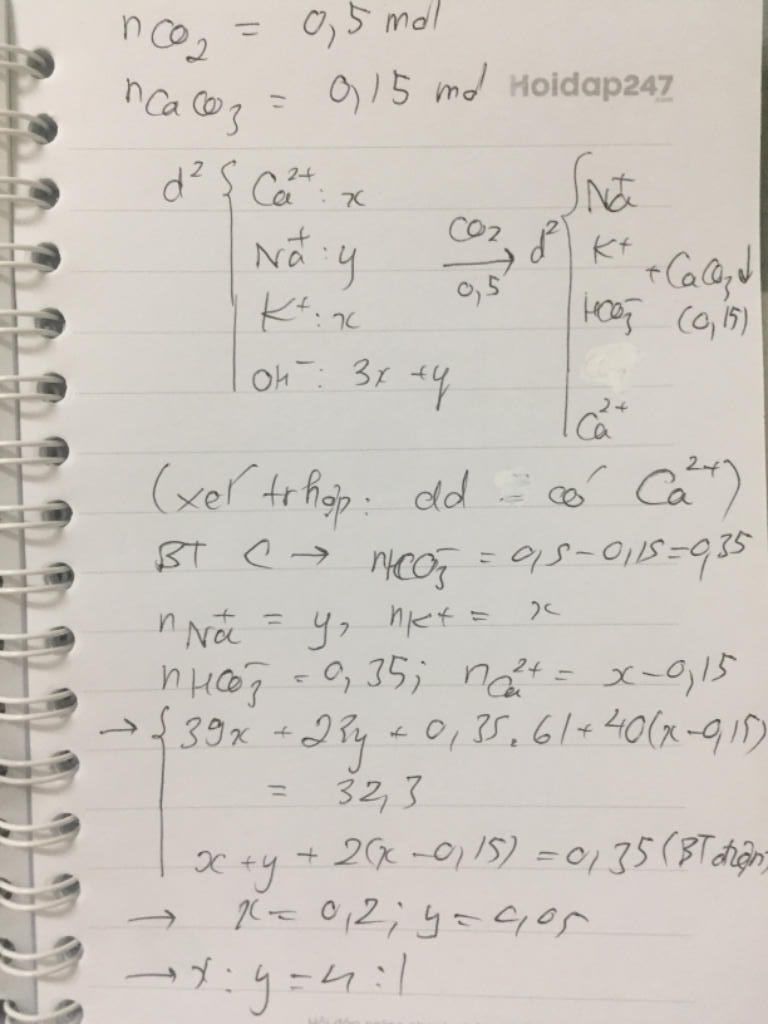 nCO₂ = 0,5 mol
nCaCO₃ = 0,15 mol
Hoidap247
d² { Ca²⁺: x
Na⁺: y
K⁺: x
OH⁻: 3x + y
CO₂
→
0,5
d² { Na⁺
K⁺
HCO₃⁻
Ca²⁺
+ CaCO₃↓
(0,15)
(xét trhợp: dd có Ca²⁺)
BT C → nHCO₃⁻ = 0,5 - 0,15 = 0,35
nNa⁺ = y, nK⁺ = x
nHCO₃⁻ = 0,35; nCa²⁺ = x - 0,15
→ { 39x + 23y + 0,35.61 + 40(x - 0,15)
= 32,3
x + y + 2(x - 0,15) = 0,35 (BT điện)
→ x = 0,2; y = 0,05
→ x : y = 4 : 1